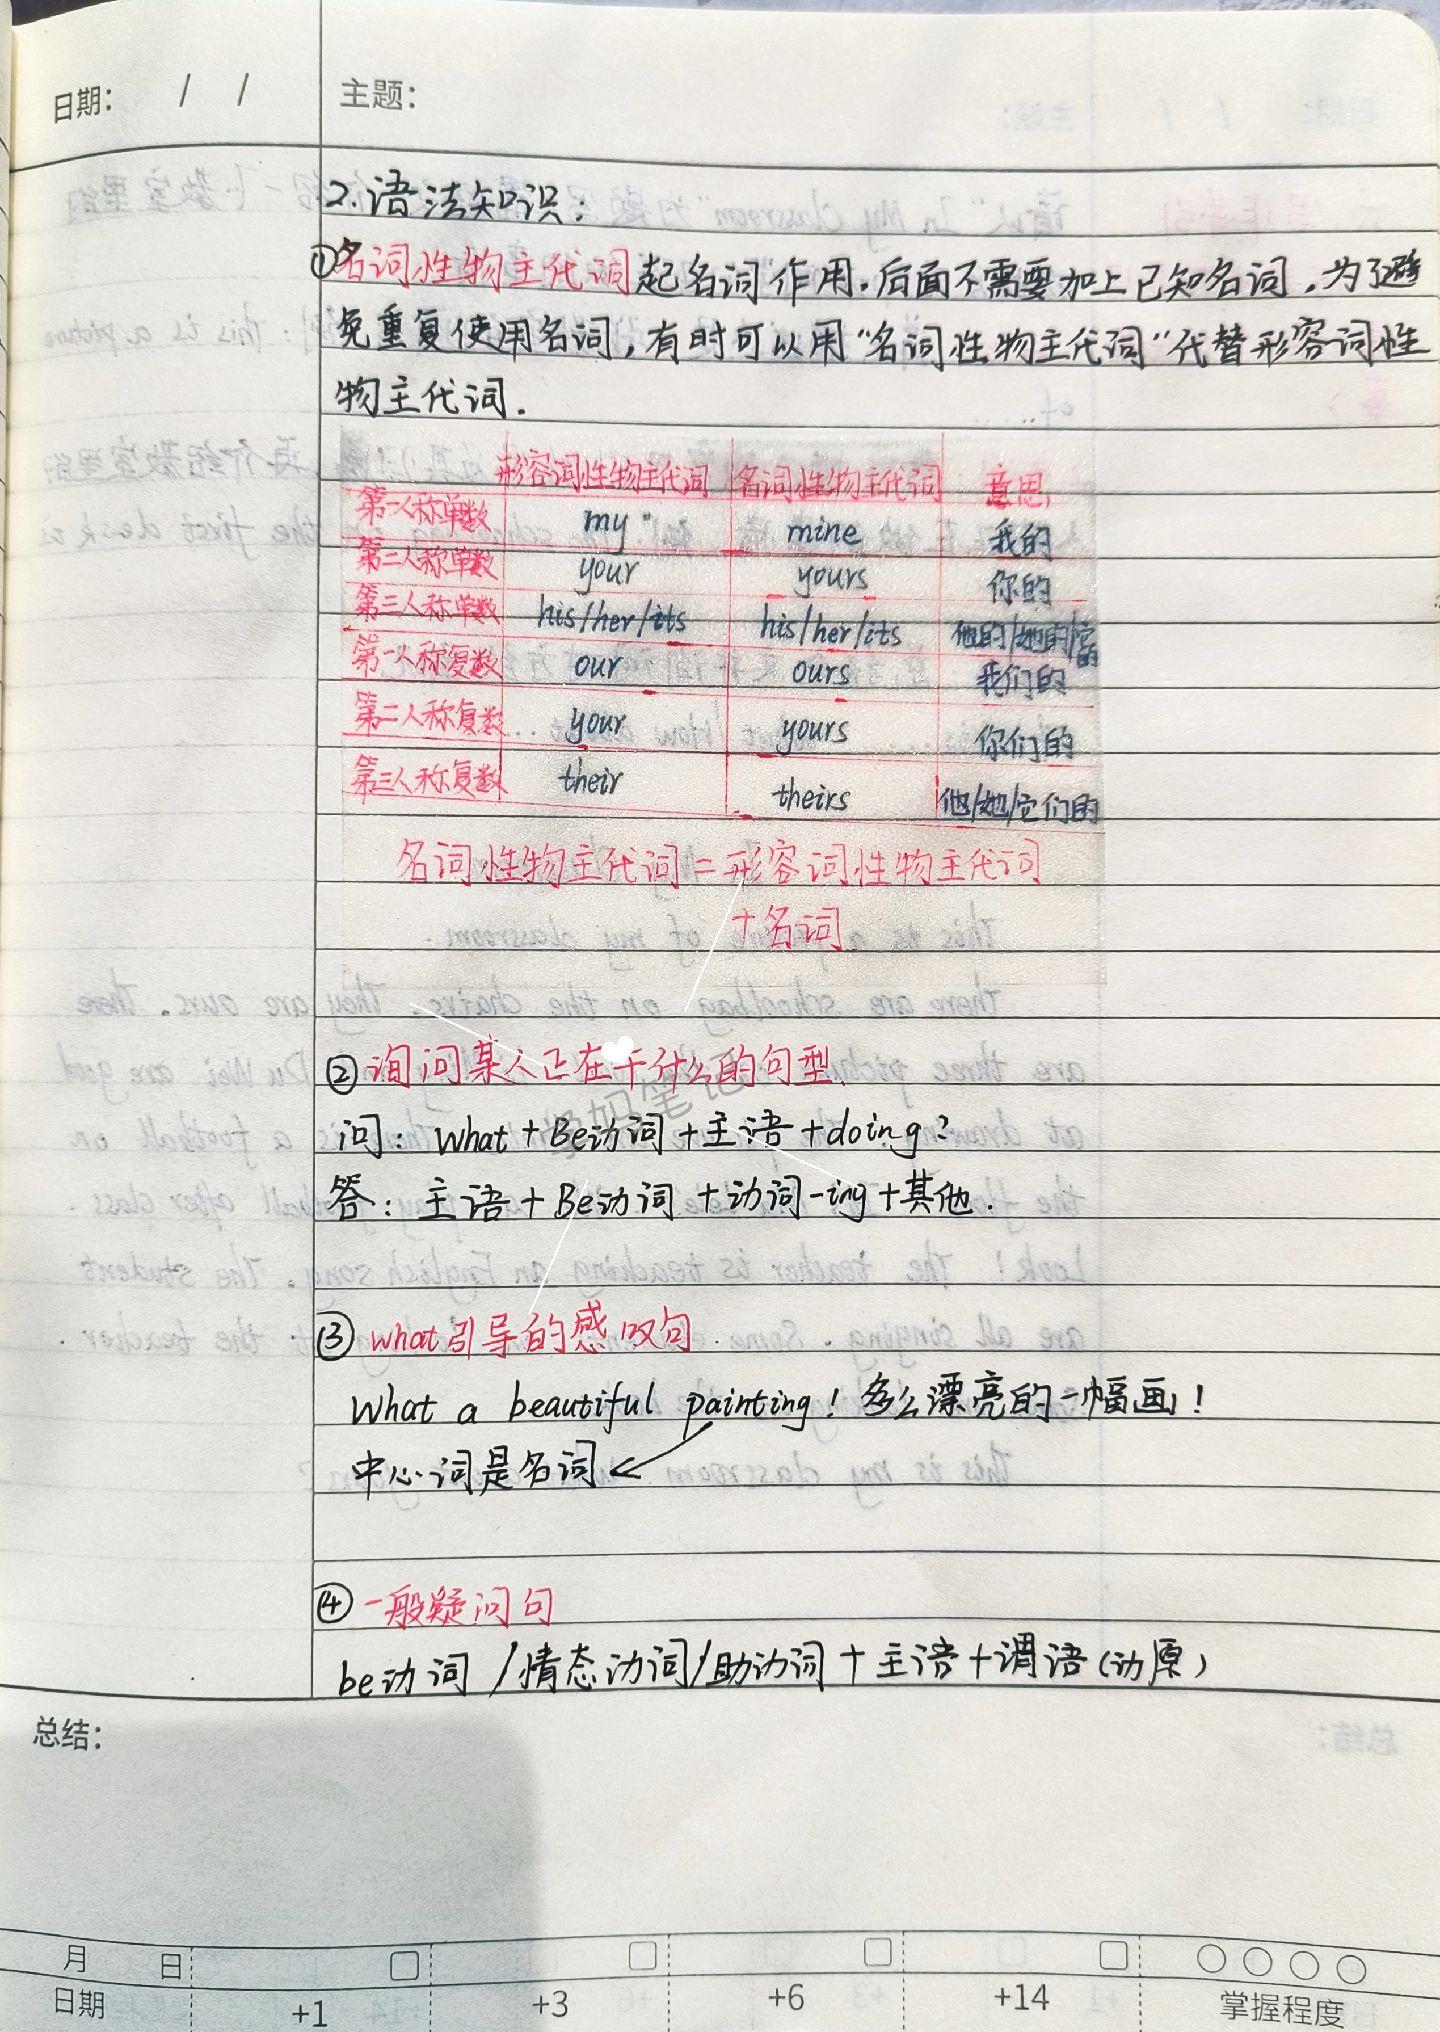 日期： / /
主题：
2.语法知识：
①名词性物主代词起名词作用.后面不需要加上已知名词，为了避
免重复使用名词，有时可以用"名词性物主代词"代替形容词性
物主代词.
形容词性物主代词 名词性物主代词 意思
第一人称单数 my mine 我的
第二人称单数 your yours 你的
第三人称单数 his/her/its his/her/its 他的/她的/它的
第一人称复数 our ours 我们的
第二人称复数 your yours 你们的
第三人称复数 their theirs 他/她/它们的
名词性物主代词=形容词性物主代词
+名词
②询问某人正在干什么的句型
问：what+Be动词+主语+doing?
答：主语+Be动词+动词-ing+其他.
③what引导的感叹句.
What a beautiful painting! 多么漂亮的一幅画！
中心词是名词
④一般疑问句
be动词/情态动词/助动词+主语+谓语(动原)
总结：
月 日
日期 +1 +3 +6 +14 掌握程度